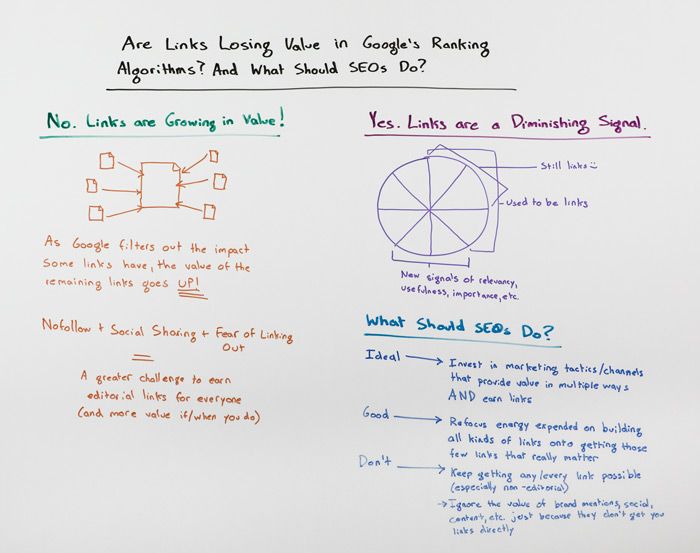 Are Links Losing Value in Google's Ranking
Algorithms? And What Should SEOs Do?
No. Links are Growing in Value!
As Google filters out the impact
some links have, the value of the
remaining links goes UP!
Nofollow + Social Sharing + Fear of Linking
Out
=
A greater challenge to earn
editorial links for everyone
(and more value if/when you do)
Yes. Links are a Diminishing Signal.
Still links
Used to be links
New signals of relevancy,
usefulness, importance, etc.
What Should SEOs Do?
Ideal → Invest in marketing tactics/channels
that provide value in multiple ways
AND earn links
Good → Refocus energy expended on building
all kinds of links onto getting those
few links that really matter
Don't → Keep getting any/every link possible
(especially non-editorial)
→ Ignore the value of brand mentions, social,
content, etc. just because they don't get you
links directly